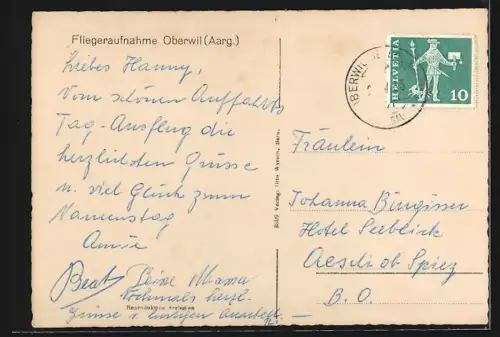 Fliegeraufnahme Oberwil (Aarg.)
Liebes Hanny,
Vom schönen Auffahrts
Tag-Ausflug die
herzlichsten Grüsse
u. viel Glück zum
Namenstag
Deine Mama
Beat
Nochmals herzl.
Grüsse u. baldigen
Reproduktion verboten
HELVETIA
10
OBERWIL
Fräulein
Johanna
Hotel Seeblick
Aeschi ob Spiez
B. O.